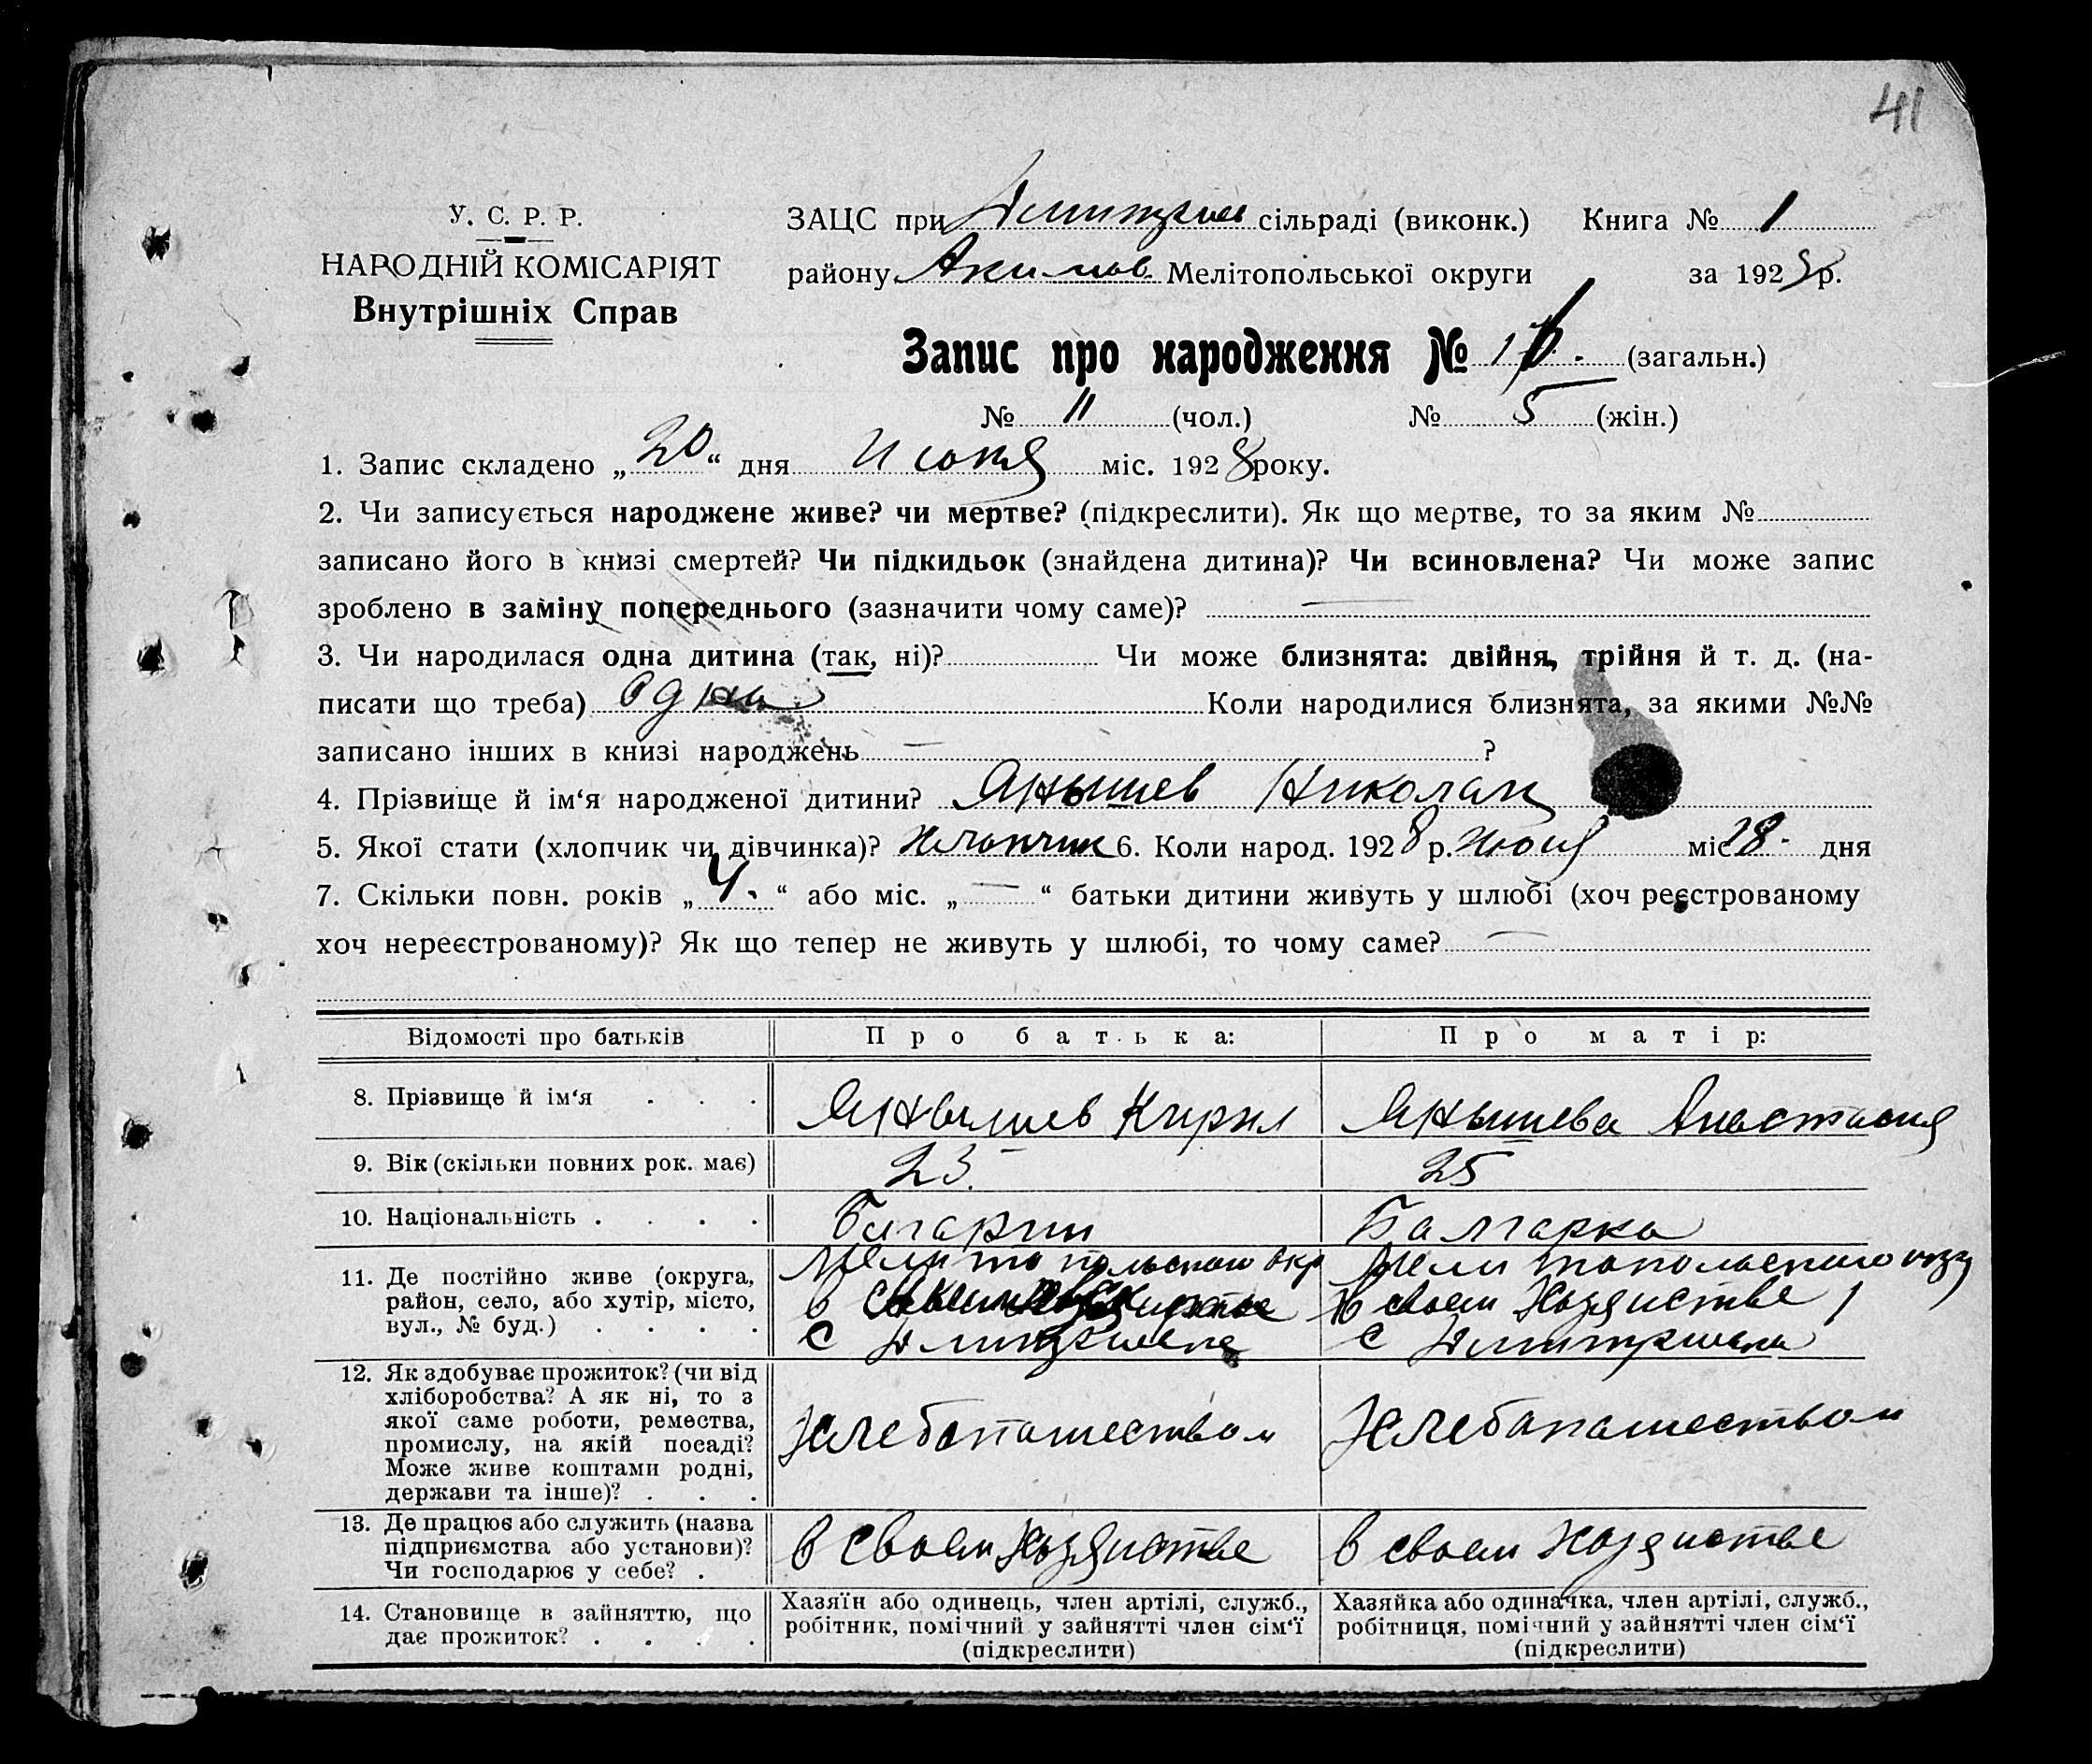 41
У. С. Р. Р.
НАРОДНІЙ КОМІСАРІЯТ
Внутрішніх Справ
ЗАЦС при сільраді (виконк.) Книга № 1
району Акимов. Мелітопольської округи за 1928 р.
Запис про народження № (загальн.)
№ 11 (чол.) № 5 (жін.)
1. Запис складено „20“ дня Июня міс. 1928 року.
2. Чи записується народжене живе? чи мертве? (підкреслити). Як що мертве, то за яким №
записано його в книзі смертей? Чи підкидьок (знайдена дитина)? Чи всиновлена? Чи може запис
зроблено в заміну попереднього (зазначити чому саме)? —
3. Чи народилася одна дитина (так, ні)? Чи може близнята: двійня, трійня й т. д. (на-
писати що треба) одна Коли народилися близнята, за якими №№
записано інших в книзі народжень — ?
4. Прізвище й ім‘я народженої дитини? Янышев Николай
5. Якої стати (хлопчик чи дівчинка)? Хлопчик 6. Коли народ. 1928 р. міс 18. дня
7. Скільки повн. років „4.“ або міс. „—“ батьки дитини живуть у шлюбі (хоч реєстрованому
хоч нереєстрованому)? Як що тепер не живуть у шлюбі, то чому саме? —
Відомості про батьків Про батька: Про матір:
8. Прізвище й ім‘я . . . Янышев Кирил Янышева Анастасия
9. Вік (скільки повних рок. має) 23. 25
10. Національність . . . . Багарин Балгарка
11. Де постійно живе (округа,
район, село, або хутір, місто,
вул., № буд.) . . . .
Мелитопольского окр
в
с
Мелитопольского
в своем Хозяистве
с
12. Як здобуває прожиток? (чи від
хліборобства? А як ні, то з
якої саме роботи, ремества,
промислу, на якій посаді?
Може живе коштами родні,
держави та інше)? . . .
Хлебопашеством Хлебапашеством
13. Де працює або служить (назва
підприємства або установи)?
Чи господарює у себе? .
в своем Хозяистве в своем Хозяистве
14. Становище в зайняттю, що
дає прожиток? . . . .
Хазяїн або одинець, член артілі, служб.,
робітник, помічний у зайнятті член сім‘ї
(підкреслити)
Хазяйка або одиначка, член артілі, служб.,
робітниця, помічний у зайнятті член сім‘ї
(підкреслити)